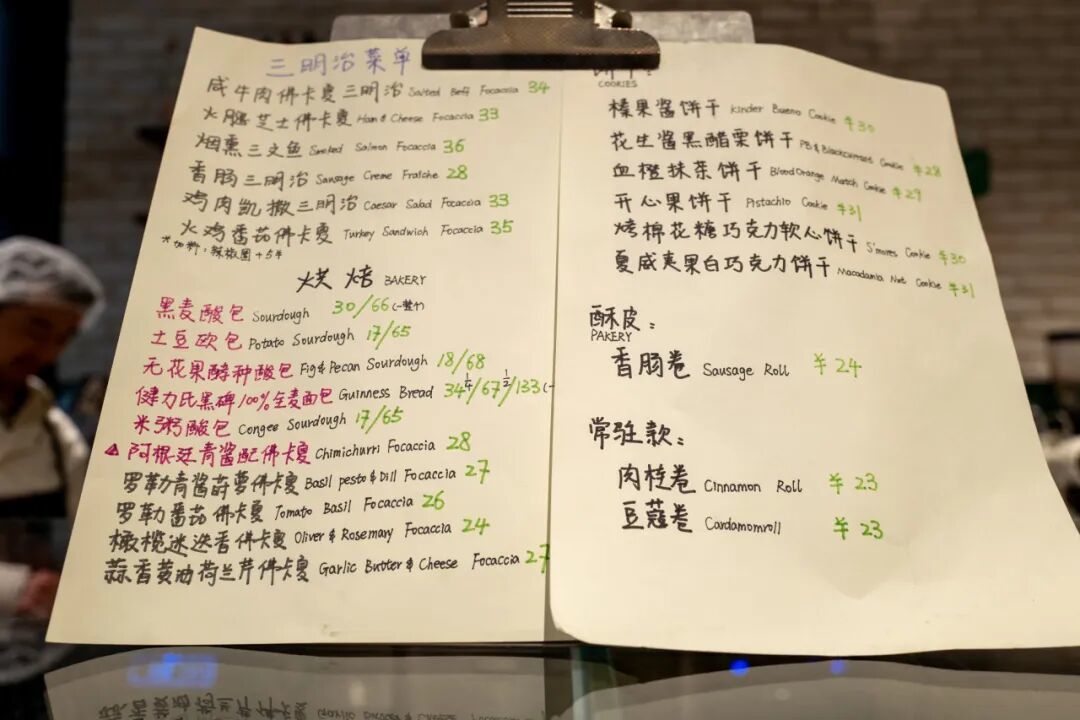 三明治菜单
咸牛肉佛卡夏三明治 Salted Beff Focaccia 34
火腿芝士佛卡夏 Ham & Cheese Focaccia 33
烟熏三文鱼 Smoked Salmon Focaccia 36
香肠三明治 Sausage Creme Fraîche 28
鸡肉凯撒三明治 Caesar Salad Focaccia 33
火鸡番茄佛卡夏 Turkey Sandwich Focaccia 35
*加料：辣椒圈+5¥
烘焙 BAKERY
黑麦酸包 Sourdough 30/66(一整个)
土豆欧包 Potato Sourdough 17/65
无花果酵种酸包 Fig & Pecan Sourdough 18/68
健力士黑啤100%全麦面包 Guinness Bread 34 1/4/67 1/2/133(一
米粥酸包 Congee Sourdough 17/65
阿根廷青酱配佛卡夏 Chimichurri Focaccia 28
罗勒青酱莳萝佛卡夏 Basil pesto & Dill Focaccia 27
罗勒番茄佛卡夏 Tomato Basil Focaccia 26
橄榄迷迭香佛卡夏 Oliver & Rosemary Focaccia 24
蒜香黄油荷兰芹佛卡夏 Garlic Butter & Cheese Focaccia 27
COOKIES
榛果酱饼干 Kinder Bueno Cookie ¥30
花生酱黑醋栗饼干 PB & Blackcurrant Cookie ¥28
血橙抹茶饼干 Blood Orange Match Cookie ¥29
开心果饼干 Pistachio Cookie ¥31
烤棉花糖巧克力软心饼干 S'mores Cookie ¥30
夏威夷果白巧克力饼干 Macadamia Nut Cookie ¥31
酥皮：
PAKERY
香肠卷 Sausage Roll ¥24
常驻款：
肉桂卷 Cinnamon Roll ¥23
豆蔻卷 Cardamomroll ¥23